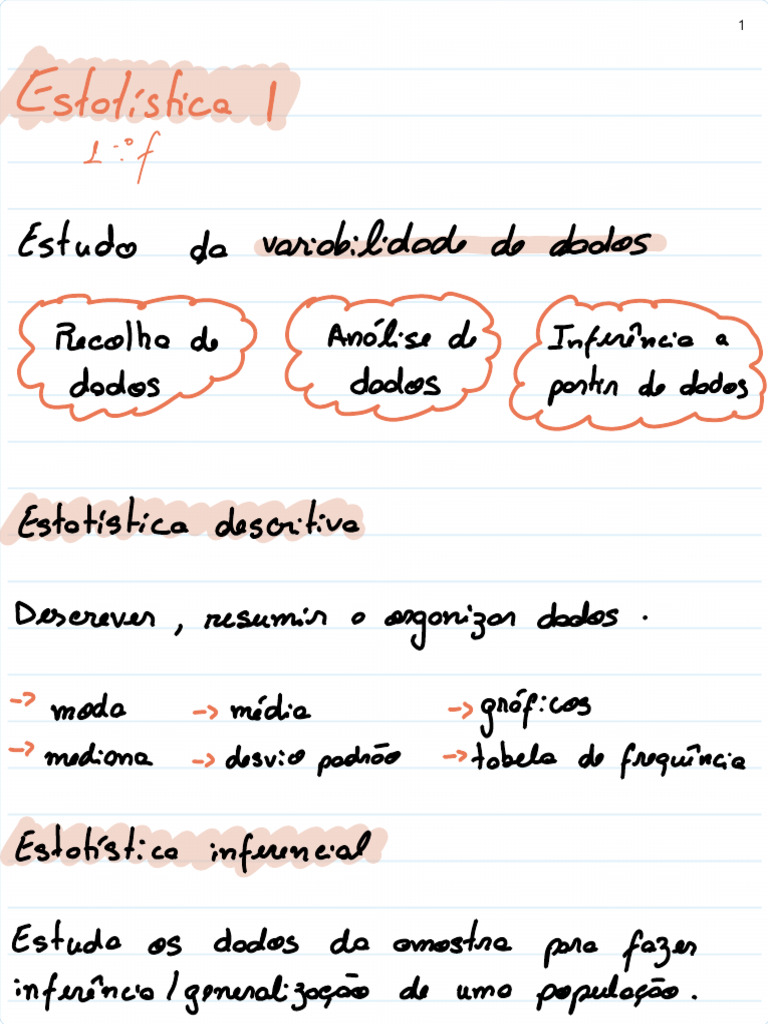 1
Estatística 1
1.º f
Estudo da variabilidade de dados
Recolha de dados
Análise de dados
Inferência a partir de dados
Estatística descritiva
Descrever, resumir o organizar dados.
-> moda -> média -> gráficos
-> mediana -> desvio padrão -> tabela de frequência
Estatística inferencial
Estuda os dados da amostra para fazer
inferência/generalização de uma população.